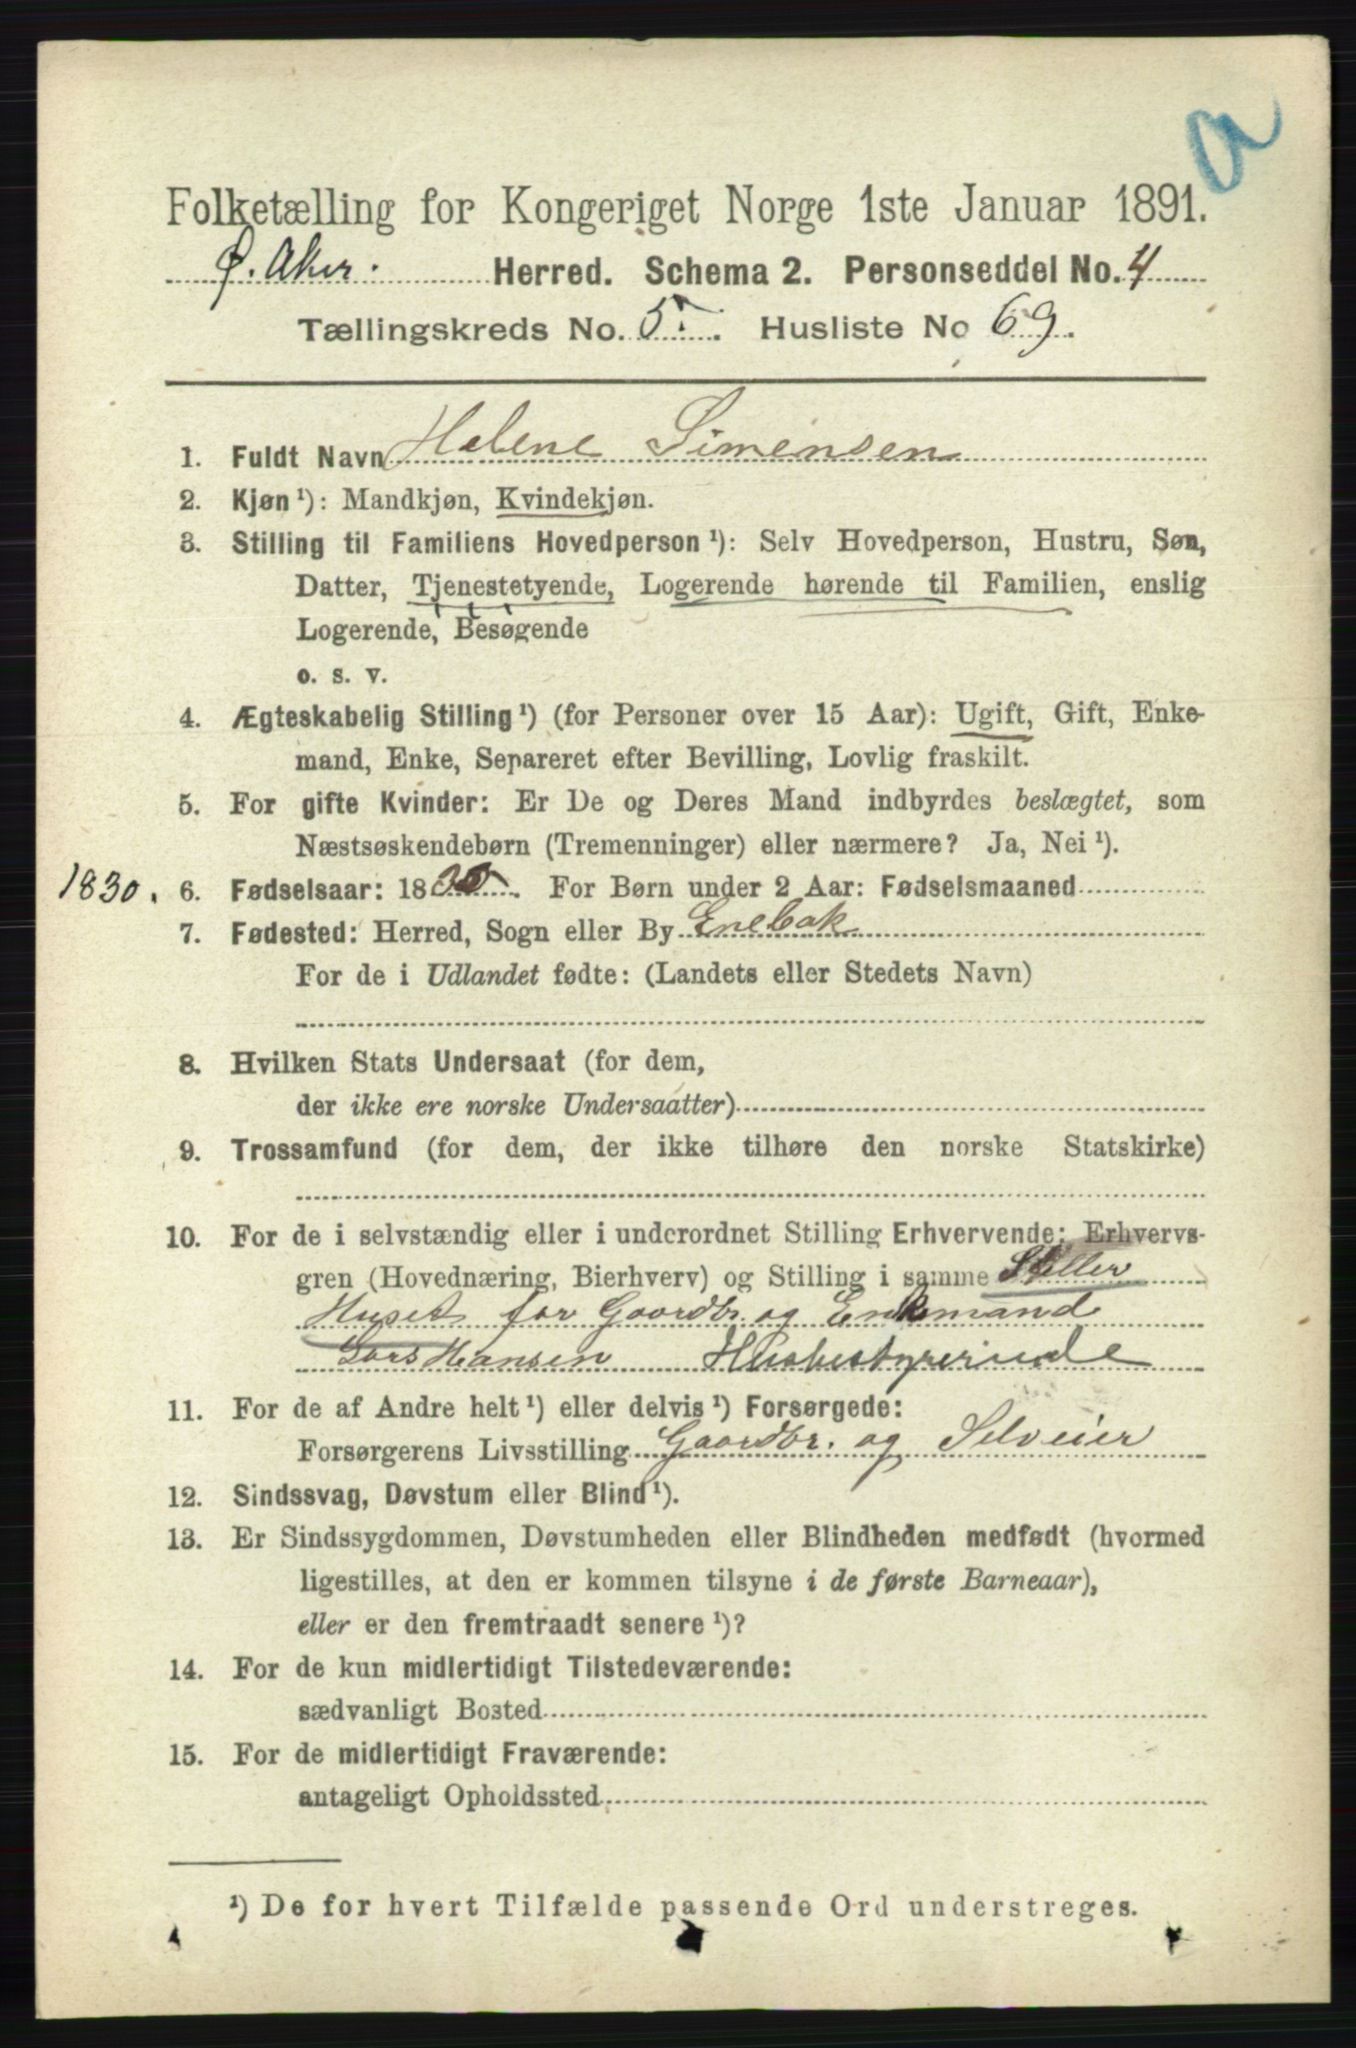 a
Folketælling for Kongeriget Norge 1ste Januar 1891.
Ø. Aker. Herred. Schema 2. Personseddel No. 4
Tællingskreds No. 5. Husliste No 69.
1. Fuldt Navn Helene Simensen
2. Kjøn ¹): Mandkjøn, Kvindekjøn.
3. Stilling til Familiens Hovedperson ¹): Selv Hovedperson, Hustru, Søn,
Datter, Tjenestetyende, Logerende hørende til Familien, enslig
Logerende, Besøgende
o. s. v.
4. Ægteskabelig Stilling ¹) (for Personer over 15 Aar): Ugift, Gift, Enke-
mand, Enke, Separeret efter Bevilling, Lovlig fraskilt.
5. For gifte Kvinder: Er De og Deres Mand indbyrdes beslægtet, som
Næstsøskendebørn (Tremenninger) eller nærmere? Ja, Nei ¹).
1830. 6. Fødselsaar: 18 . For Børn under 2 Aar: Fødselsmaaned
7. Fødested: Herred, Sogn eller By Enebak
For de i Udlandet fødte: (Landets eller Stedets Navn)
8. Hvilken Stats Undersaat (for dem,
der ikke ere norske Undersaatter)
9. Trossamfund (for dem, der ikke tilhøre den norske Statskirke)
10. For de i selvstændig eller i underordnet Stilling Erhvervende: Erhvervs-
gren (Hovednæring, Bierhverv) og Stilling i samme Steller
Huset for Gaardbr. og Enkemand
Lars Hansen Husbestyrerinde
11. For de af Andre helt ¹) eller delvis ¹) Forsørgede:
Forsørgerens Livsstilling Gaardbr. og Selveier
12. Sindssvag, Døvstum eller Blind ¹).
13. Er Sindssygdommen, Døvstumheden eller Blindheden medfødt (hvormed
ligestilles, at den er kommen tilsyne i de første Barneaar),
eller er den fremtraadt senere ¹)?
14. For de kun midlertidigt Tilstedeværende:
sædvanligt Bosted
15. For de midlertidigt Fraværende:
antageligt Opholdssted
¹) De for hvert Tilfælde passende Ord understreges.